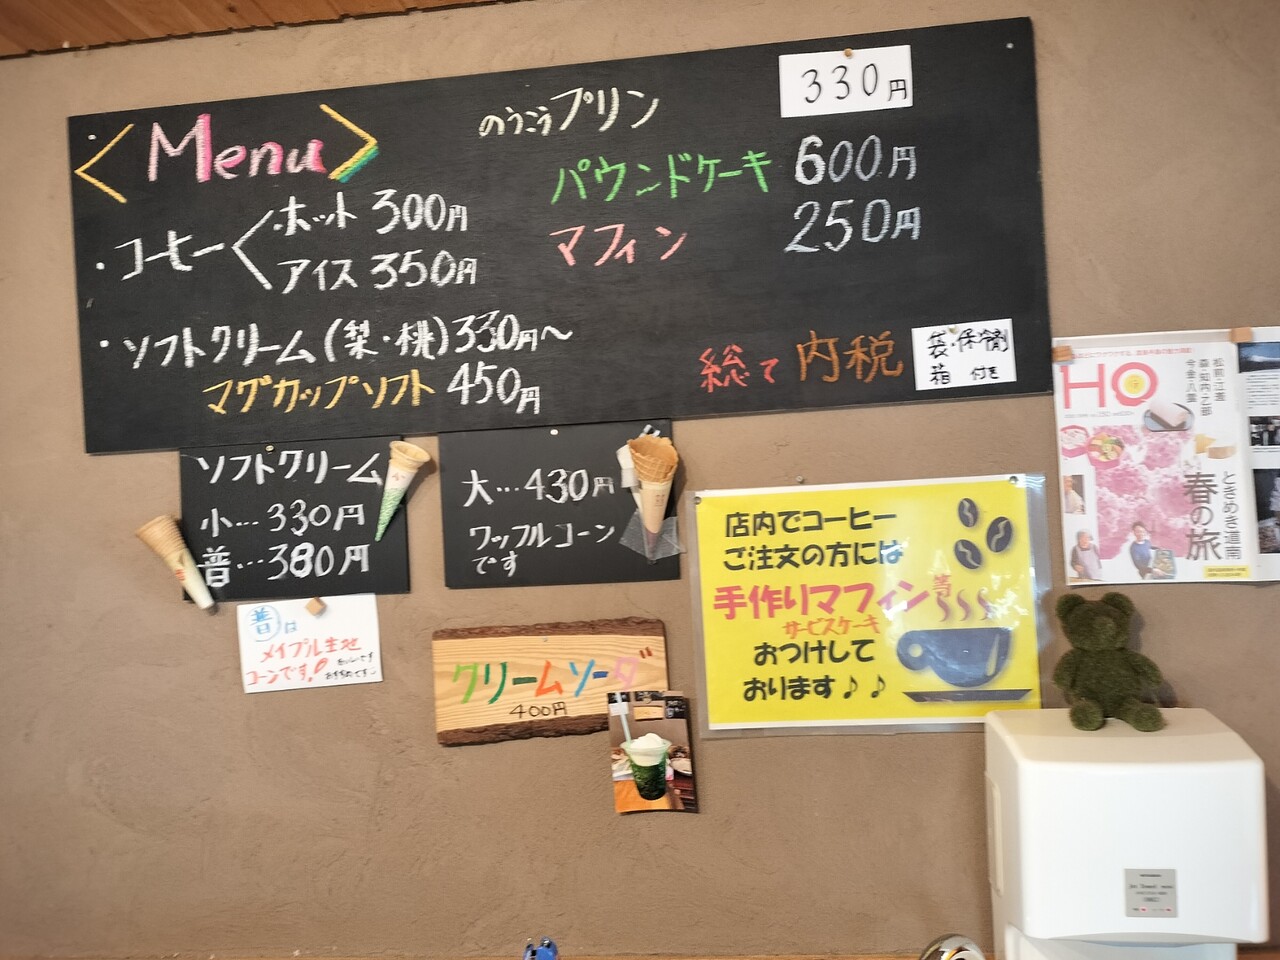 <Menu>
・コーヒー
・ホット 300円
アイス 350円
・ソフトクリーム(梨・桃)330円〜
マグカップソフト 450円
のうこうプリン 330円
パウンドケーキ 600円
マフィン 250円
総て内税
袋・保冷剤
箱 付き
ソフトクリーム
小…330円
普…380円
大…430円
ワッフルコーン
です
普は
メイプル生地
コーンです!
クリームソーダ
400円
店内でコーヒー
ご注文の方には
手作りマフィン等
サービスケーキ
おつけして
おります♪♪
HO
松前・江差
森・知内・乙部
今金・八雲
ときめき道南
春の旅